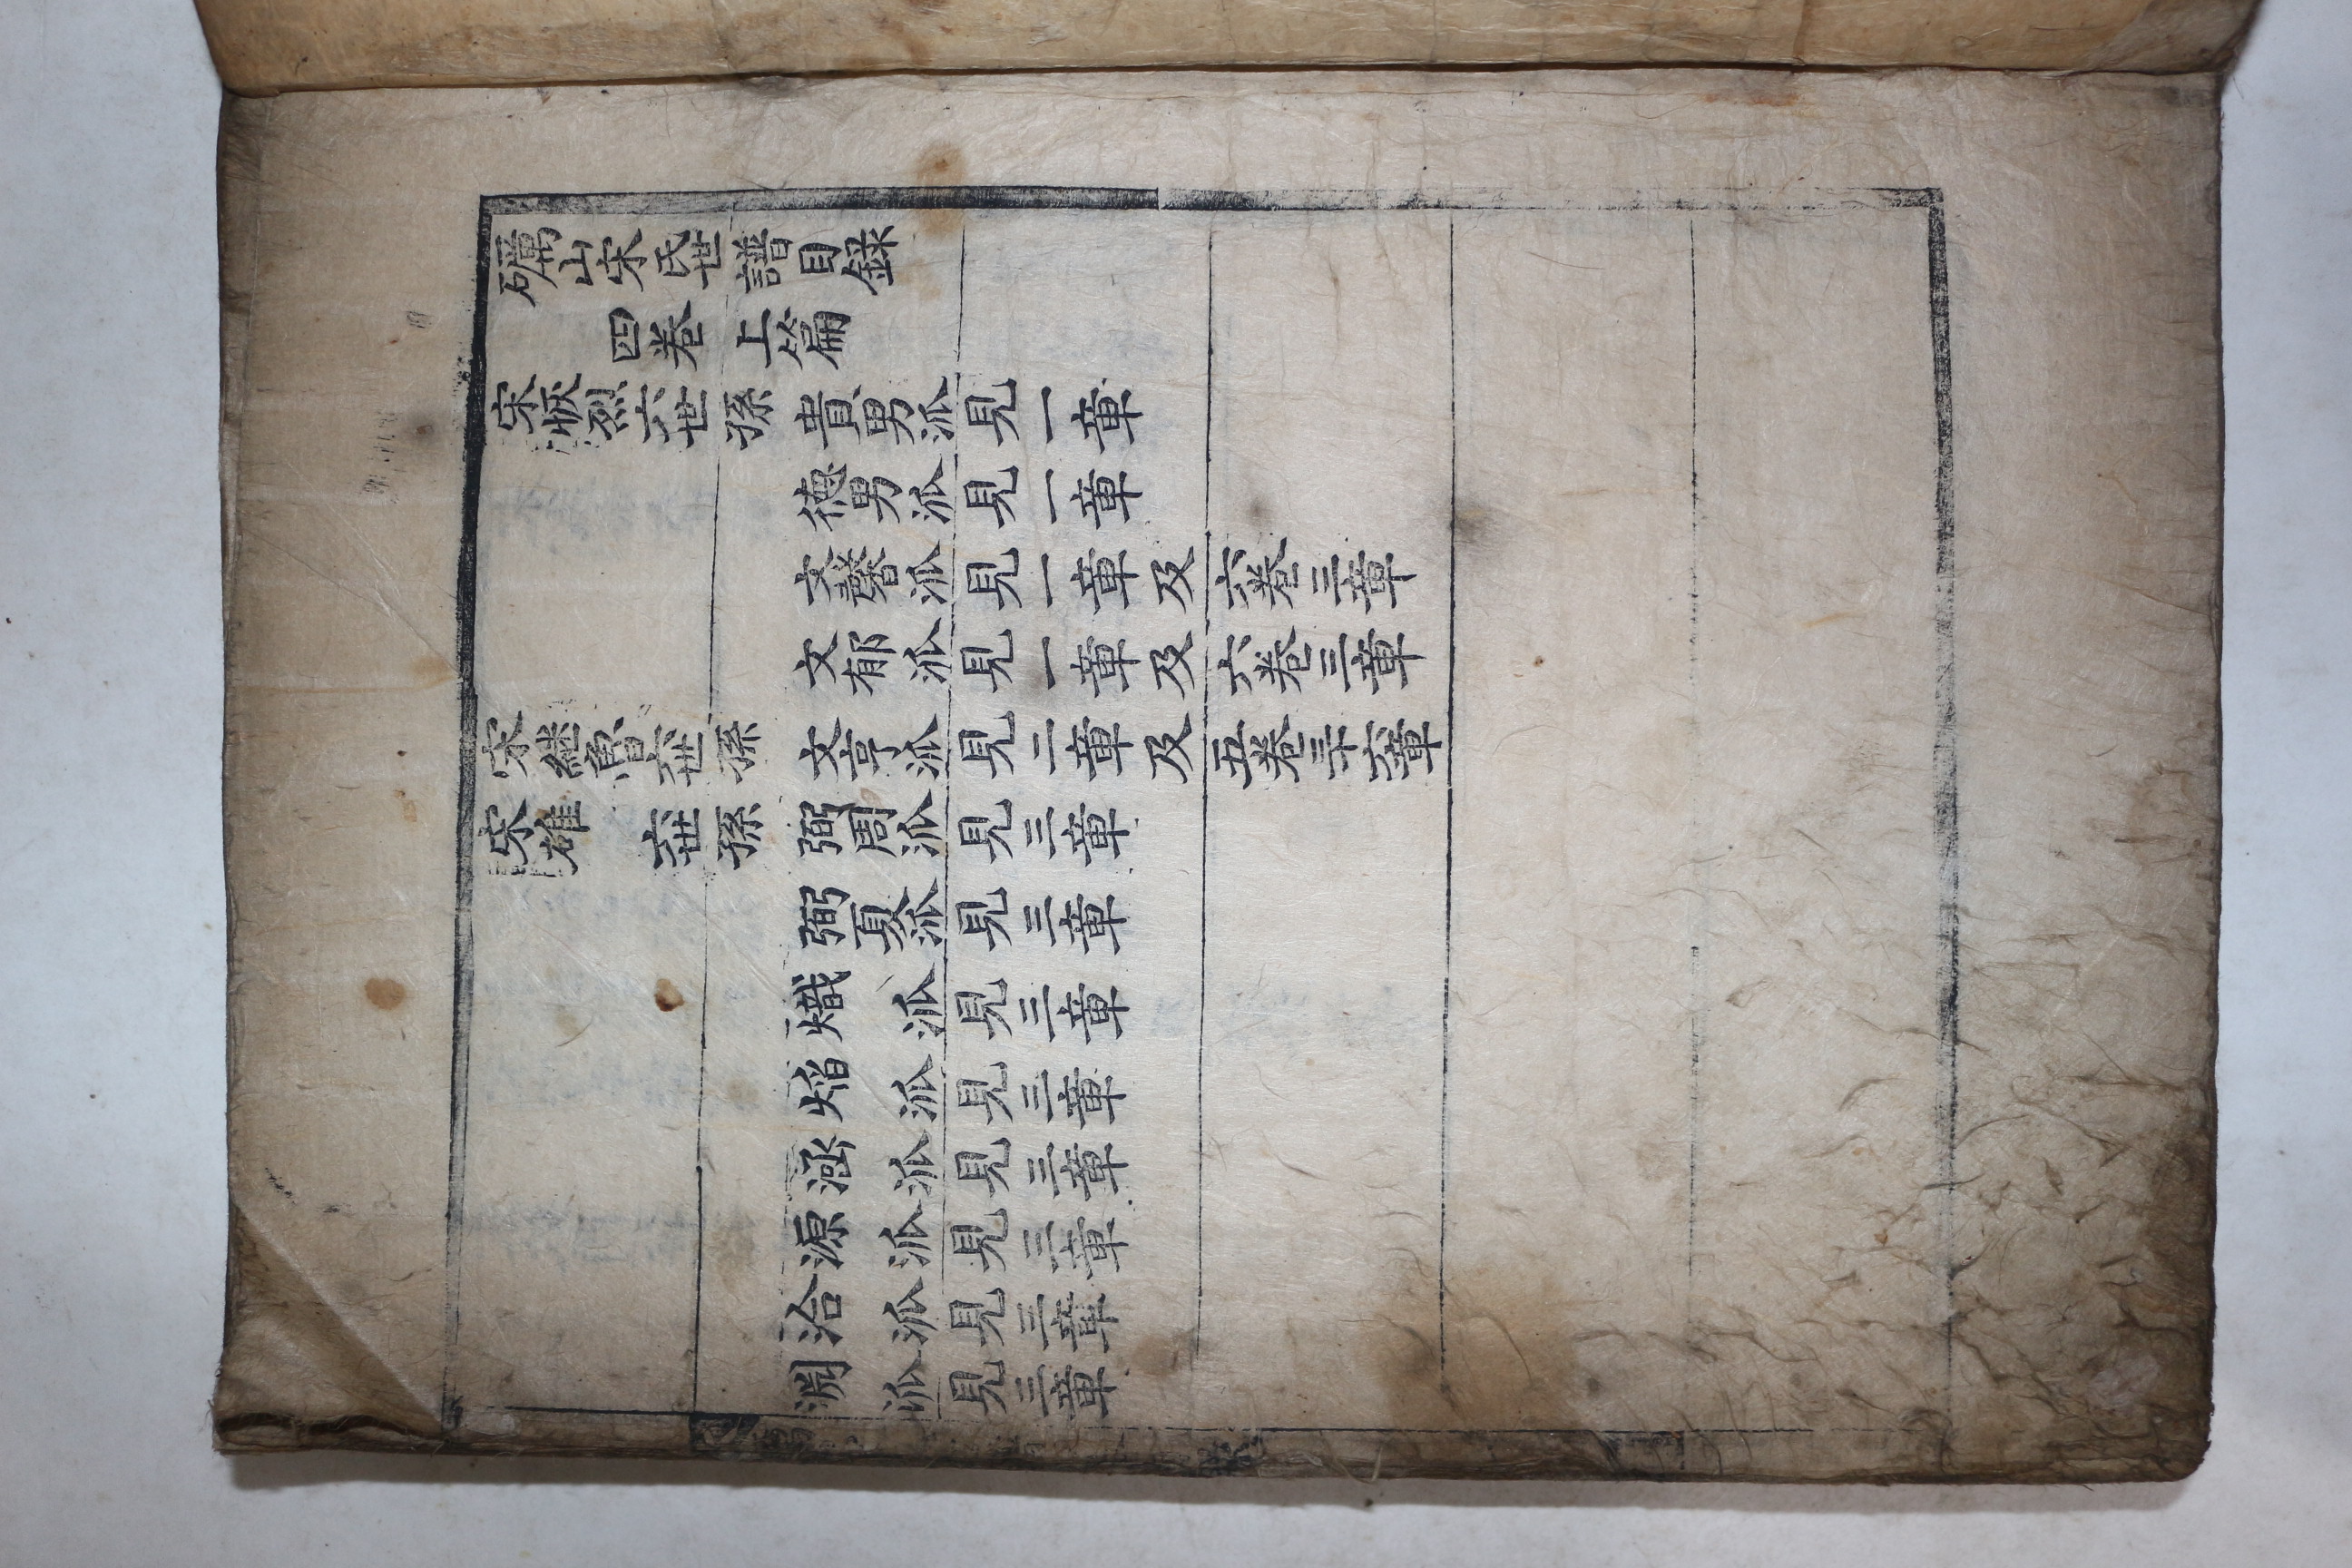 礪山宋氏世譜目錄
四卷上篇
宋烈六世孫貴男派見一章
德男派見一章
文馨派見一章及六卷三章
文郁派見一章及六卷三章
宋繼六世孫文亨派見二章及五卷三十六章
宋雄六世孫弼周派見三章
弼夏派見三章
熾派見三章
焰派見三章
涵派見三章
源派見三章
洽派見三章
淵派見三章